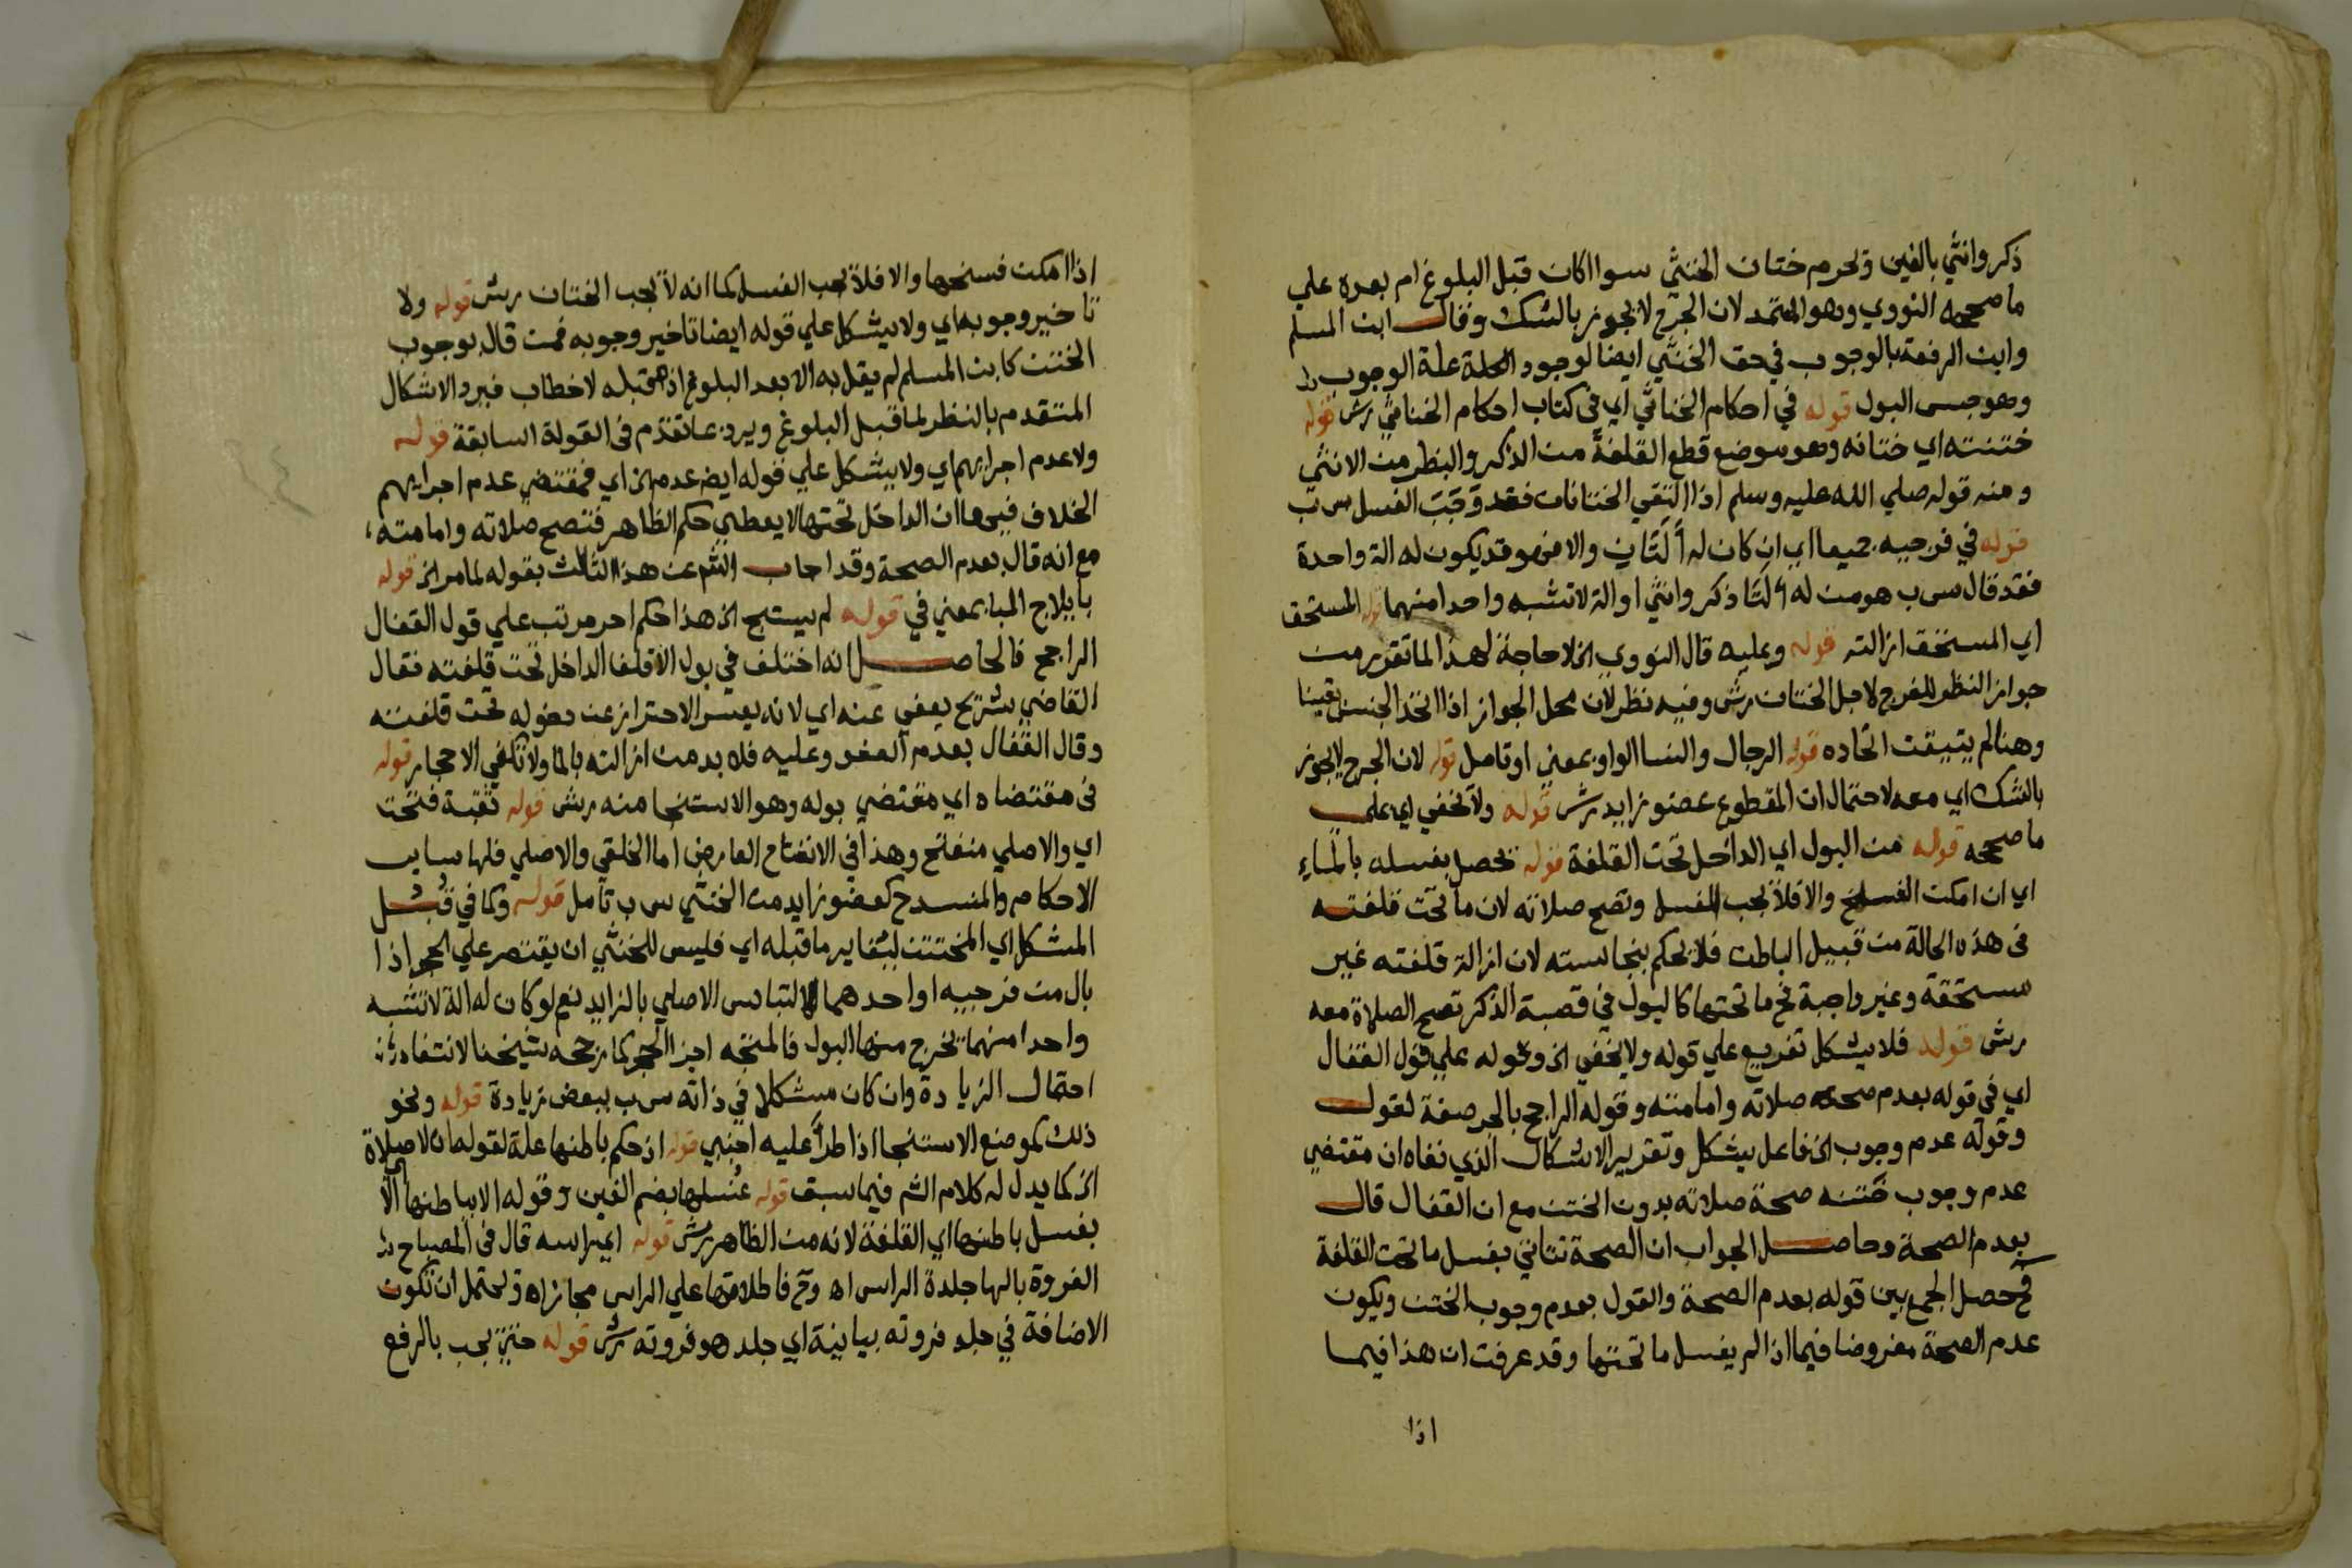 ذكر وانثي بالغين ويحرم ختان الخنثي سوا اكان قبل البلوغ ام بعده علي
ما صححه النووي وهو المعتمد لان الجرح لا يجوز بالشك وقال ابن المسلم
وابن الرفعة بالوجوب في حق الخنثي ايضا لوجود العلة علة الوجوب
وهو حبس البول قوله في احكام الخناثي اي في كتاب احكام الخناثي رش قوله
ختنته اي ختانه وهو موضع قطع القلفة من الذكر والبظر من الانثي
ومنه قوله صلي الله عليه وسلم اذا التقي الختانان فقد وَجَبَ الغسل س ب
قوله في فرجيه جميعا اي ان كان له اٰلتان والا فهو قد يكون له الة واحدة
فقد قال س ب هو من له اٰلتا ذكر وانثي او الة لا تشبه واحدا منهما قوله المستحق
اي المستحق ازالته قوله وعليه قال النووي الخ لا حاجة لهذا لما تقرر من
جواز النظر للفرج لاجل الختان رش وفيه نظر لان محل الجواز اذا اتحد الجنس يقينا
وهنا لم يتيقن اتحاده قوله الرجال والنسا الواو بمعني او تامل قوله لان الجرح لا يجوز
بالشك اي معه لاحتمال ان المقطوع عضو زايد رش قوله ولا يخفي اي علي
ما صححه قوله من البول اي الداخل تحت القلفة قوله تحصل بغسله بالماءِ
اي ان امكن الفسخ والا فلا يجب الغسل وتصح صلاته لان ما تحت قلفته
في هذه الحالة من قبيل الباطن فلا يحكم بنجاسته لان ازالة قلفته غير
مستحقة وغير واجبة فح ما تحتها كالبول في قصبة الذكر تصح الصلاة معه
رش قوله فلا يشكل تفريع علي قوله ولا يخفي الخ وقوله علي قول القفال
اي في قوله بعدم صحة صلاته وامامته وقوله الراجح بالجر صفة لقول
وقوله عدم وجوب الخ فاعل يشكل وتقرير الاشكال الذي نفاه ان مقتضي
عدم وجوب ختنه صحة صلاته بدون الختن مع ان القفال قال
بعدم الصحة وحاصل الجواب ان الصحة تتاتي بغسل ما تحت القلفة
فح حصل الجمع بين قوله بعدم الصحة والقول بعدم وجوب الختن ويكون
عدم الصحة مفروضا فيما اذا لم يغسل ما تحتها وقد عرفت ان هذا فيما
اذا
اذا امكن فسخها والا فلا يجب الغسل كما انه لا يجب الختان رش قوله ولا
تاخير وجوبه اي ولا يشكل علي قوله ايضا تاخير وجوبه فمن قال بوجوب
الختن كابن المسلم لم يقل به الا بعد البلوغ اذ قبله لا خطاب فيرد الاشكال
المتقدم بالنظر لما قبل البلوغ ويرد بما تقدم في القولة السابقة قوله
ولا عدم اجرايهم اي ولا يشكل علي قوله ايض عدم الخ اي فمقتضي عدم اجرايهم
الخلاف فيها ان الداخل تحتها لا يعطي حكم الظاهر فتصح صلاته وامامته
مع انه قال بعدم الصحة وقد اجاب الشم عن هذا الثالث بقوله لما مر الخ قوله
بايلاج المبا بمعني في قوله لم يستبح الخ هذا حكم اخر مرتب علي قول القفال
الراجح فالحاصل انه اختلف في بول الاقلف الداخل تحت قلفته فقال
القاضي شريح يعفي عنه اي لانه يعسر الاحتراز عن دخوله تحت قلفته
وقال القفال بعدم العفو وعليه فلا بد من ازالته بالما ولا تكفي الاحجار قوله
في مقتضاه اي مقتضي بوله وهو الاستنجا منه رش قوله ثقبة فتحت
اي والاصلي منفتح وهذا في الانفتاح العارض اما الخلقي والاصلي فلها ساير
الاحكام والمنسد ح كعضو زايد من الخنثي س ب تامل قوله وكما في قبُل
المشكل اي المختتن ليغاير ما قبله اي فليس للخنثي ان يقتصر علي الحجر اذا
بال من فرجيه او احدهما لالتباس الاصلي بالزايد نعم لو كان له الة لا تشبه
واحدا منهما يخرج منها البول فالمتجه اجزا الحجر كما رجحه شيخنا لانتفاء
احتمال الزيادة وان كان مشكلا في ذاته س ب ببعض زيادة قوله ونحو
ذلك كموضع الاستنجا اذا طرأ عليه اجنبي قوله اذ حكم باطنها علة لقوله ان لا صلاة
الخ كما يدل له كلام الشم فيما سبق قوله غُسلها بضم الغين وقوله الا بباطنها الا
بغسل باطنها اي القلفة لانه من الظاهر رش قوله اي راسه قال في المصباح
الفروة بالها جلدة الراس اه وح فاطلاقها علي الراس مجاز اه ويحتمل ان تكون
الاضافة في جلد فروته بيانية اي جلد هو فروته رش قوله حتي يجب بالرفع